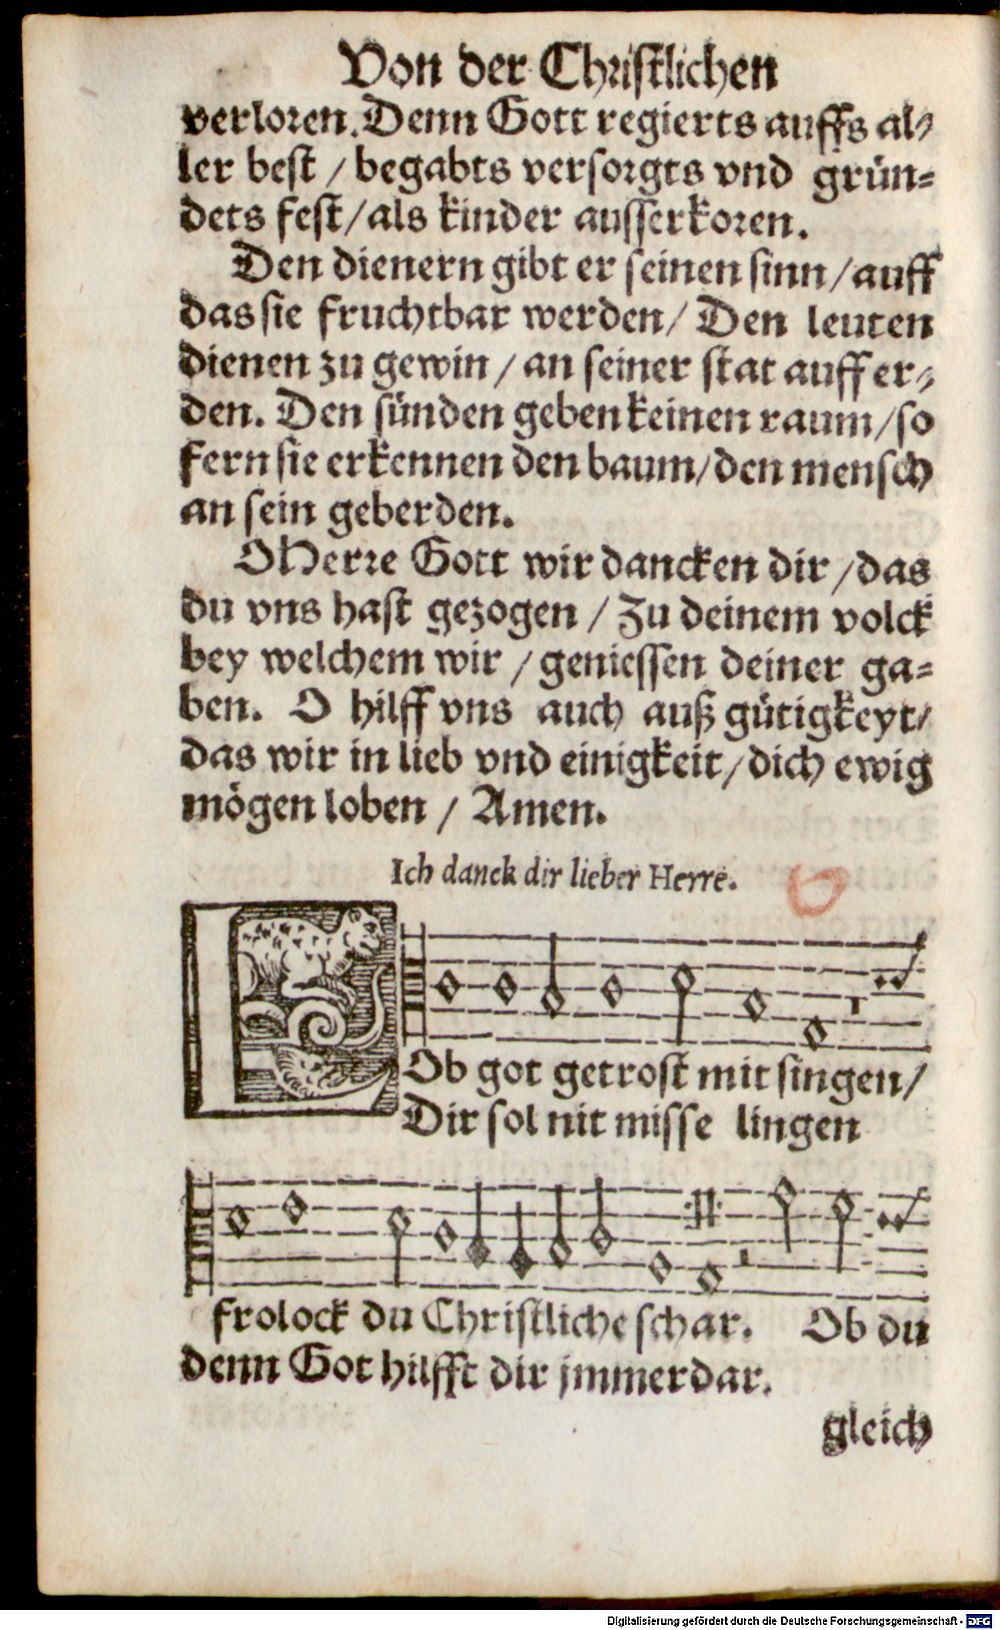 Von der Christlichen
verloren. Denn Gott regierts auffs al⸗
ler best / begabts versorgts vnd grün⸗
dets fest / als kinder ausserkoren.
Den dienern gibt er seinen sinn / auff
das sie fruchtbar werden / Den leuten
dienen zu gewin / an seiner stat auff er⸗
den. Den sünden geben keinen raum / so
fern sie erkennen den baum / den mensch
an sein geberden.
O Herre Gott wir dancken dir / das
du vns hast gezogen / Zu deinem volck
bey welchem wir / geniessen deiner ga⸗
ben. O hilff vns auch auß gütigkeyt /
das wir in lieb vnd einigkeit / dich ewig
mögen loben / Amen.
Ich danck dir lieber Herre.
LOb got getrost mit singen /
Dir sol nit misse lingen
frolock du Christliche schar. Ob du
denn Got hilfft dir jmmerdar.
gleich
Digitalisierung gefördert durch die Deutsche Forschungsgemeinschaft - DFG